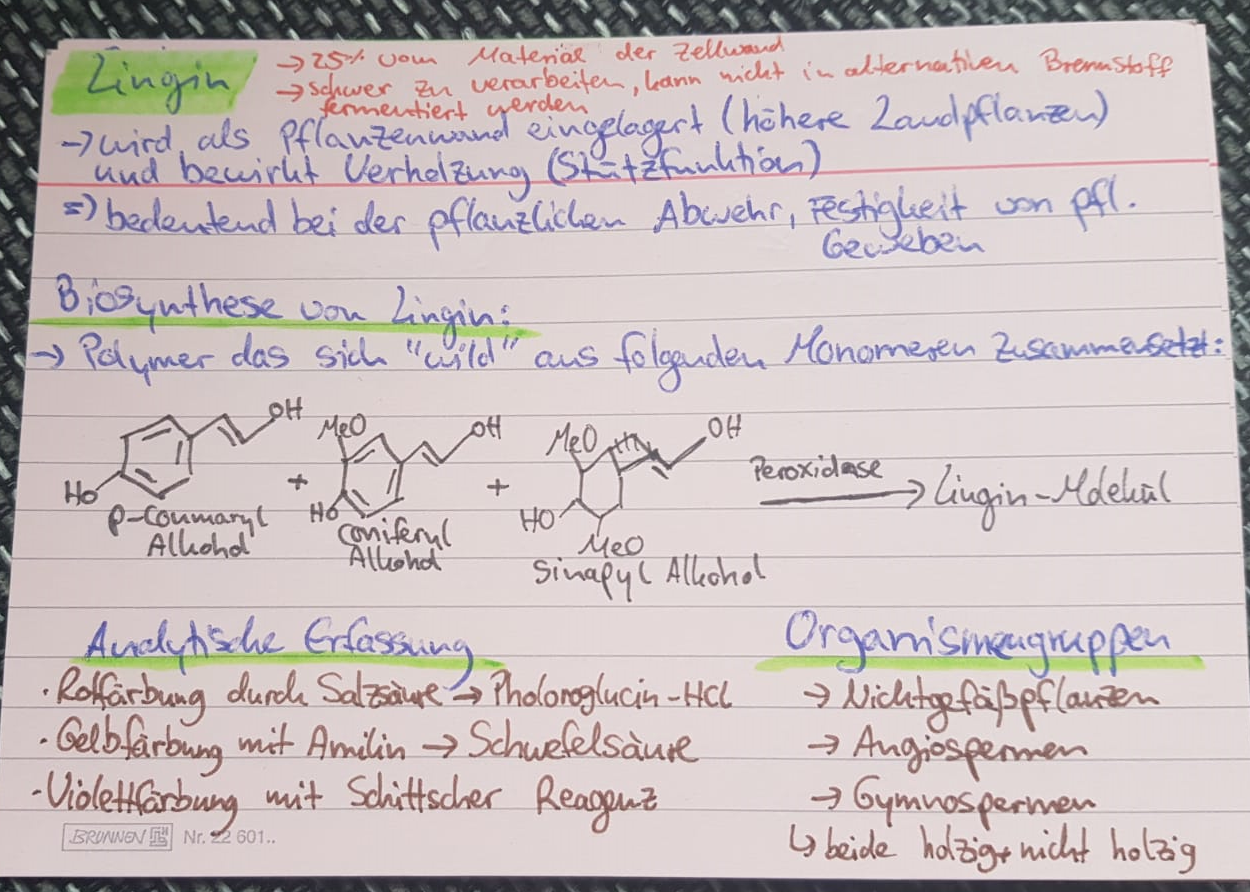 Lingin
→ 25% vom Material der Zellwand
→ schwer zu verarbeiten, kann nicht in alternativen Brennstoff
fermentiert werden
→ wird als Pflanzenwand eingelagert (höhere Landpflanzen)
und bewirkt Verholzung (Stützfunktion)
=> bedeutend bei der pflanzlichen Abwehr, Festigkeit von pfl.
Geweben
Biosynthese von Lingin:
→ Polymer das sich "wild" aus folgenden Monomeren zusammensetzt:
OH
HO
p-Coumaryl
Alkohol
+
MeO
OH
HO
Coniferyl
Alkohol
+
MeO
OH
HO
MeO
Sinapyl Alkohol
Peroxidase
→ Lingin-Molekül
Analytische Erfassung
· Rotfärbung durch Salzsäure → Pholoroglucin-HCl
· Gelbfärbung mit Amilin → Schwefelsäure
· Violettfärbung mit Schittscher Reagenz
Organismengruppen
→ Nichtgefäßpflanzen
→ Angiospermen
→ Gymnospermen
↳ beide holzig + nicht holzig
BRUNNEN Nr. 22 601..